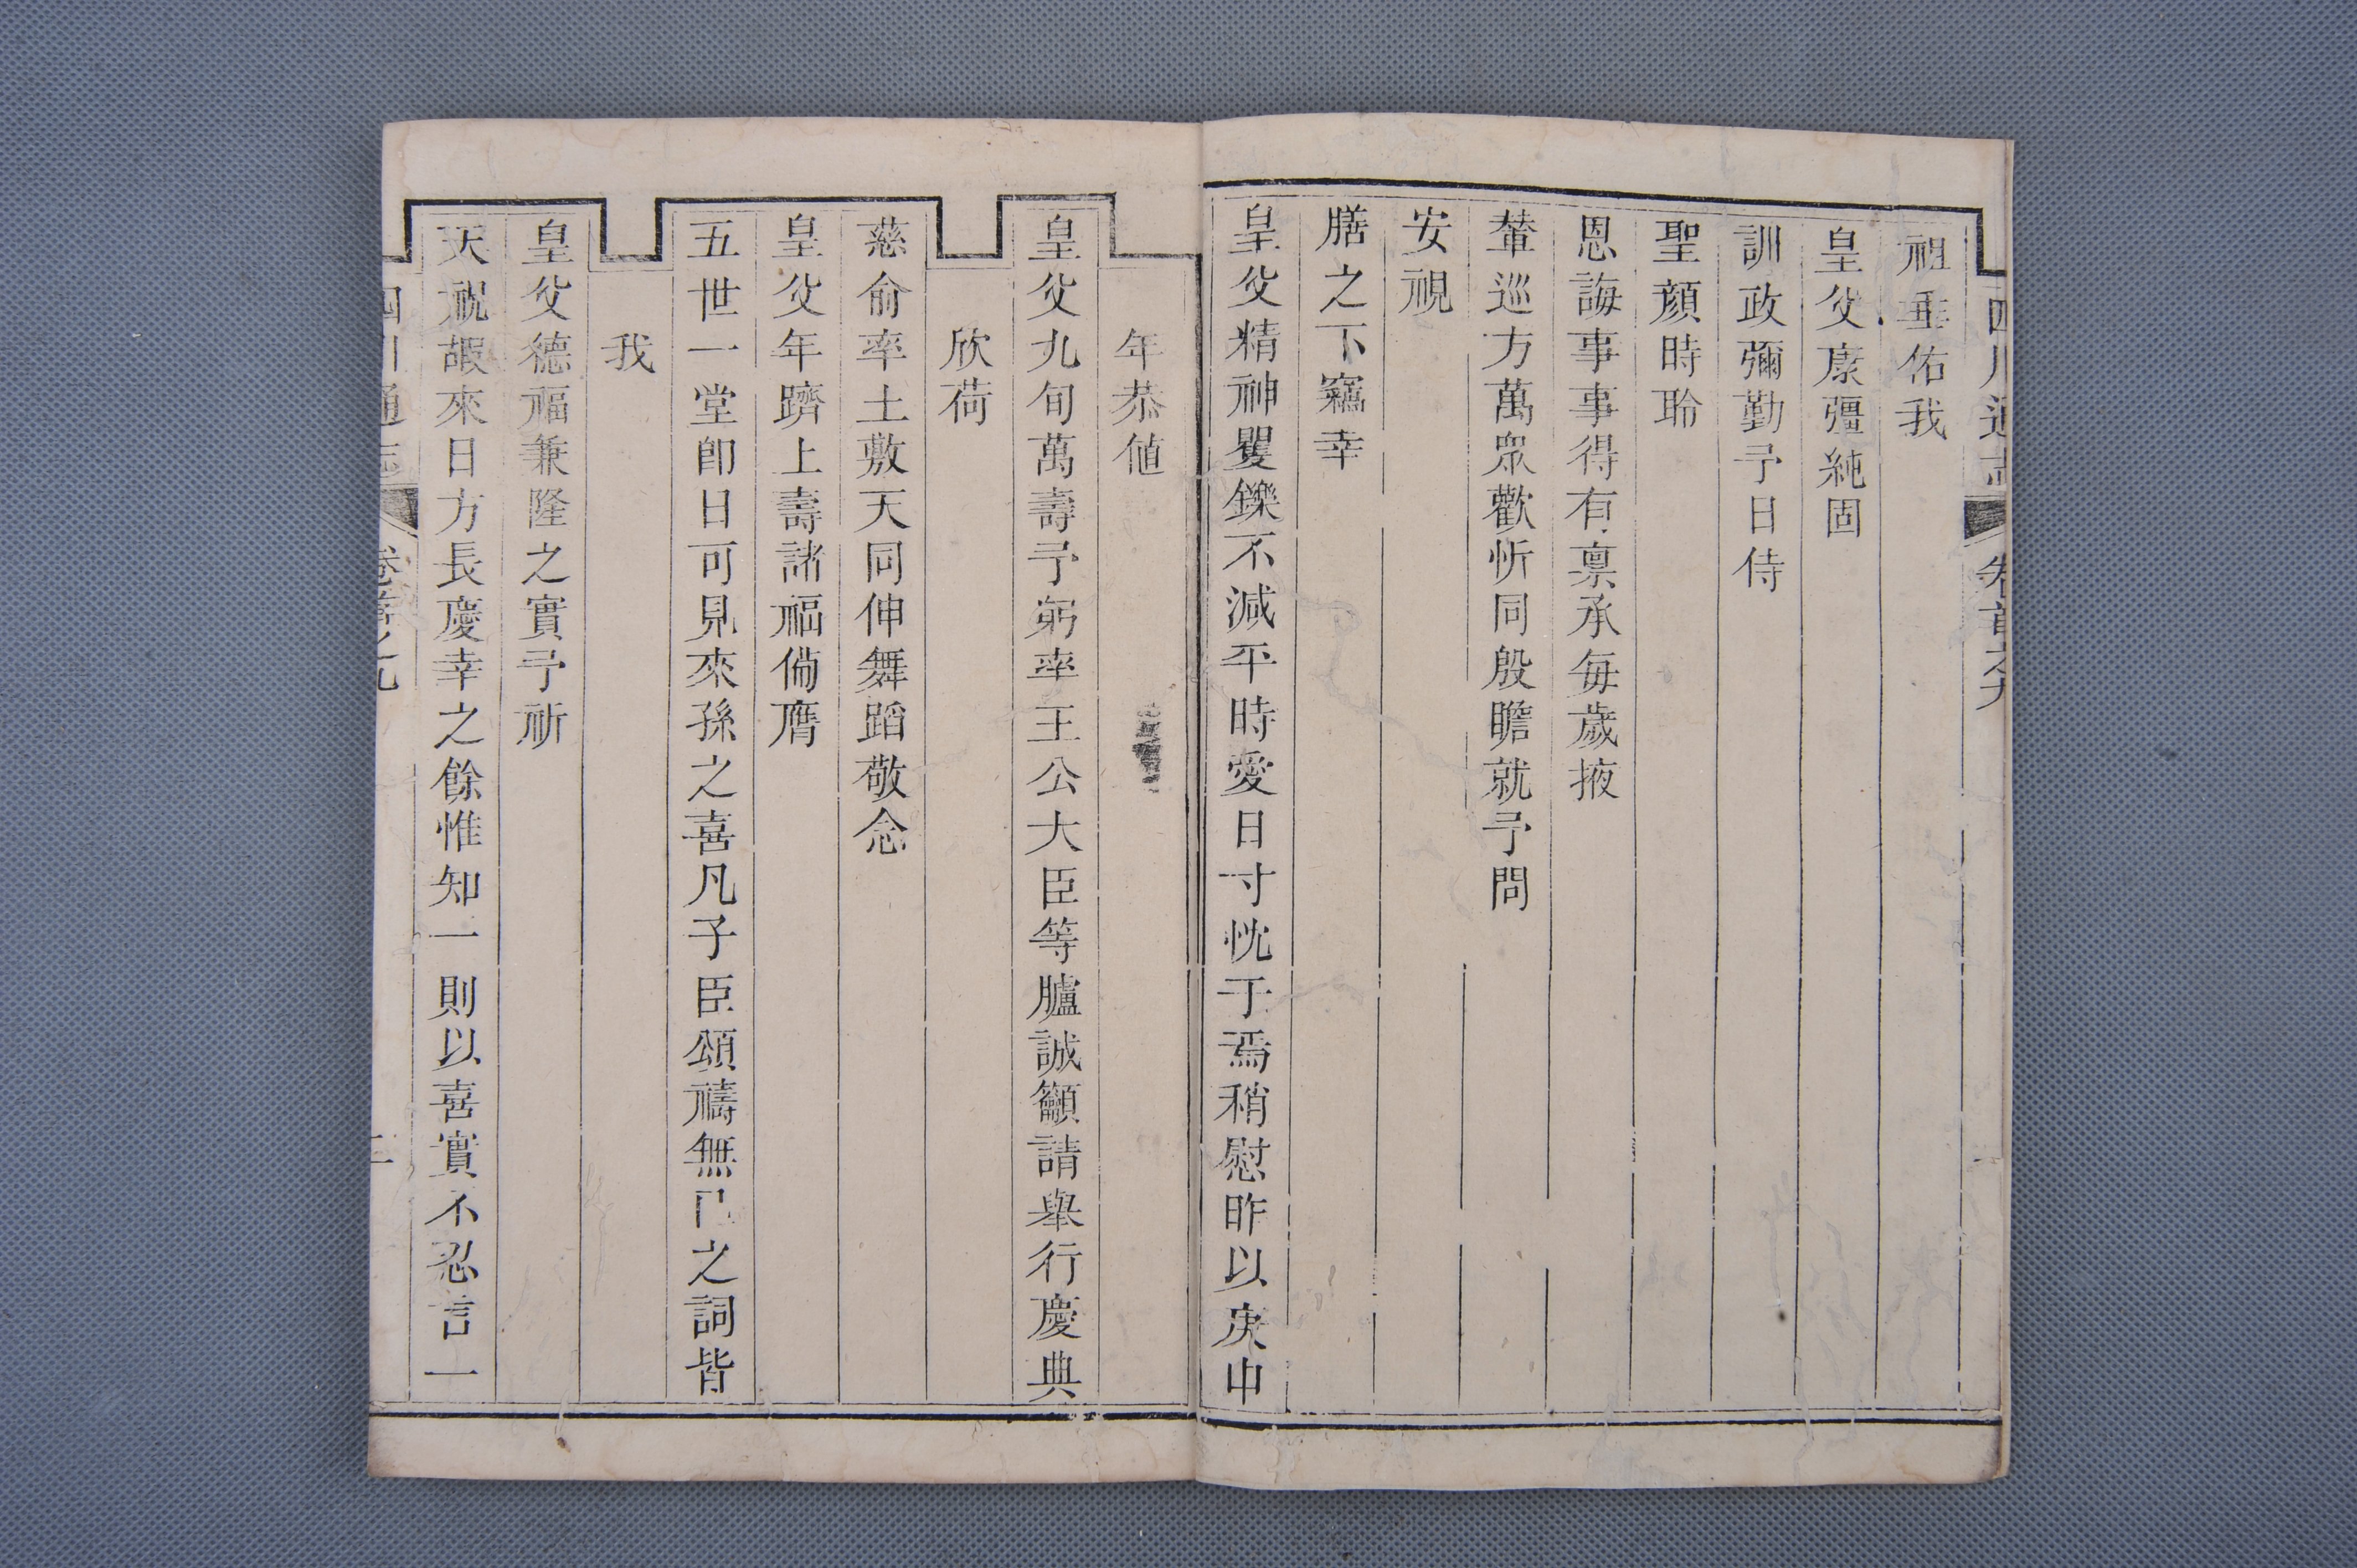 四川通志 卷首之九
祖垂佑我
皇父康彊純固
訓政彌勤予日侍
聖顏時聆
恩誨事事得有稟承每歲掖
輦巡方萬眾歡忻同殷瞻就予問
安視
膳之下竊幸
皇父精神矍鑠不減平時愛日寸忱于焉稍慰昨以庚申
年恭値
皇父九旬萬壽予躬率王公大臣等臚誠籲請舉行慶典
欣荷
慈俞率土敷天同伸舞蹈敬念
皇父年躋上壽諸福備膺
五世一堂卽日可見來孫之喜凡子臣頌禱無 之詞皆
我
皇父德福兼隆之實予祈
天祝嘏來日方長慶幸之餘惟知一則以喜實不忍言一
四川通志 卷首之九 三